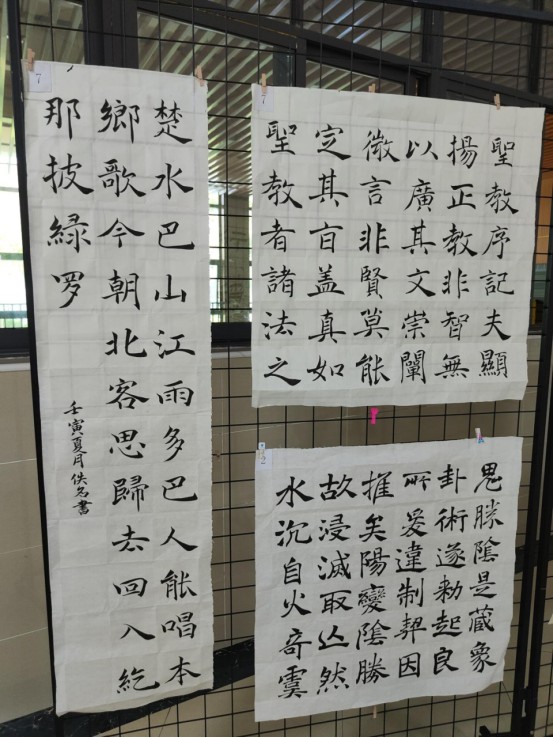 7
楚水巴山江雨多巴人能唱本
鄉歌今朝北客思歸去回入紇
那披綠罗
壬寅夏月佚名書
7
聖教序記夫顯
揚正教非智無
以廣其文崇闡
微言非賢莫能
定其旨盖真如
聖教者諸法之
2
鬼勝陰是蔵象
卦術遂勑起良
所爰違制契因
摧矣陽變陰勝
故浸滅取亾然
水沉自火奇